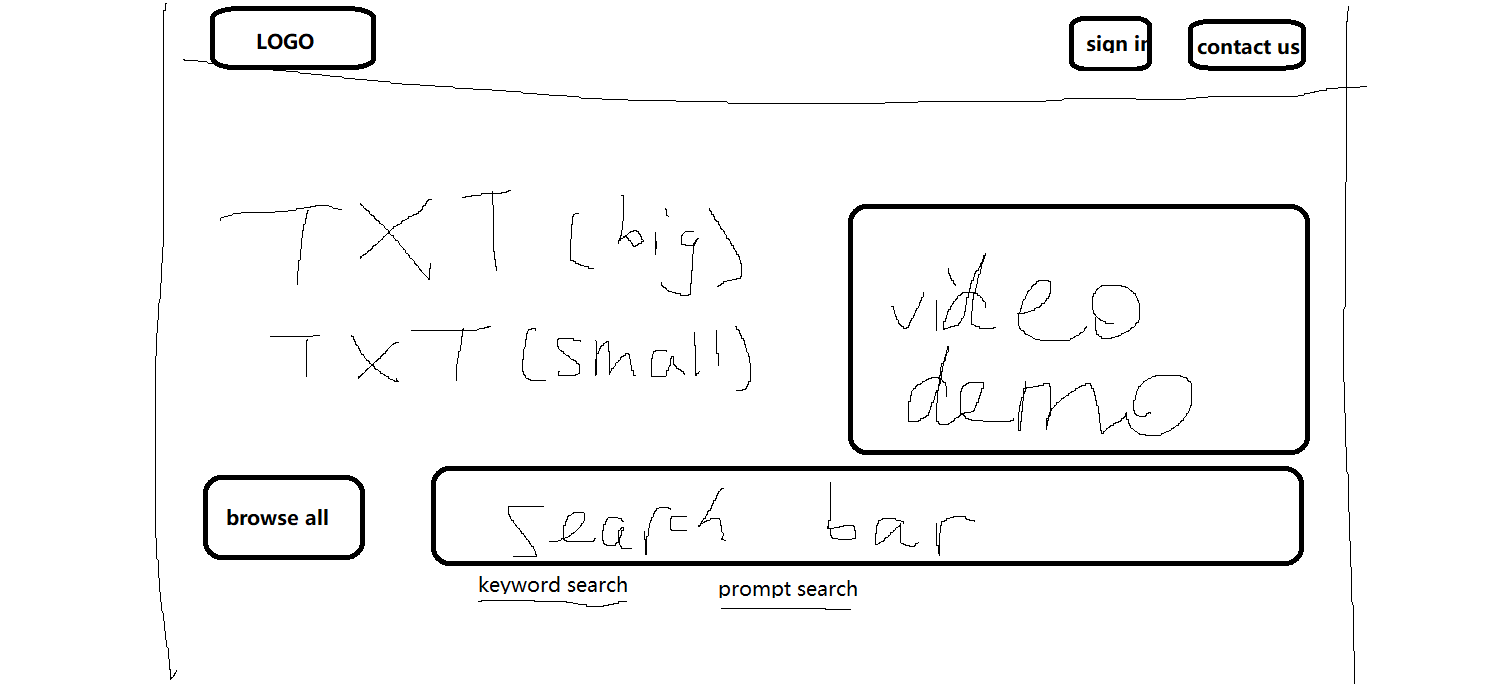 LOGO
sign in
contact us
TXT (big)
TXT (small)
video
demo
browse all
search bar
keyword search
prompt search